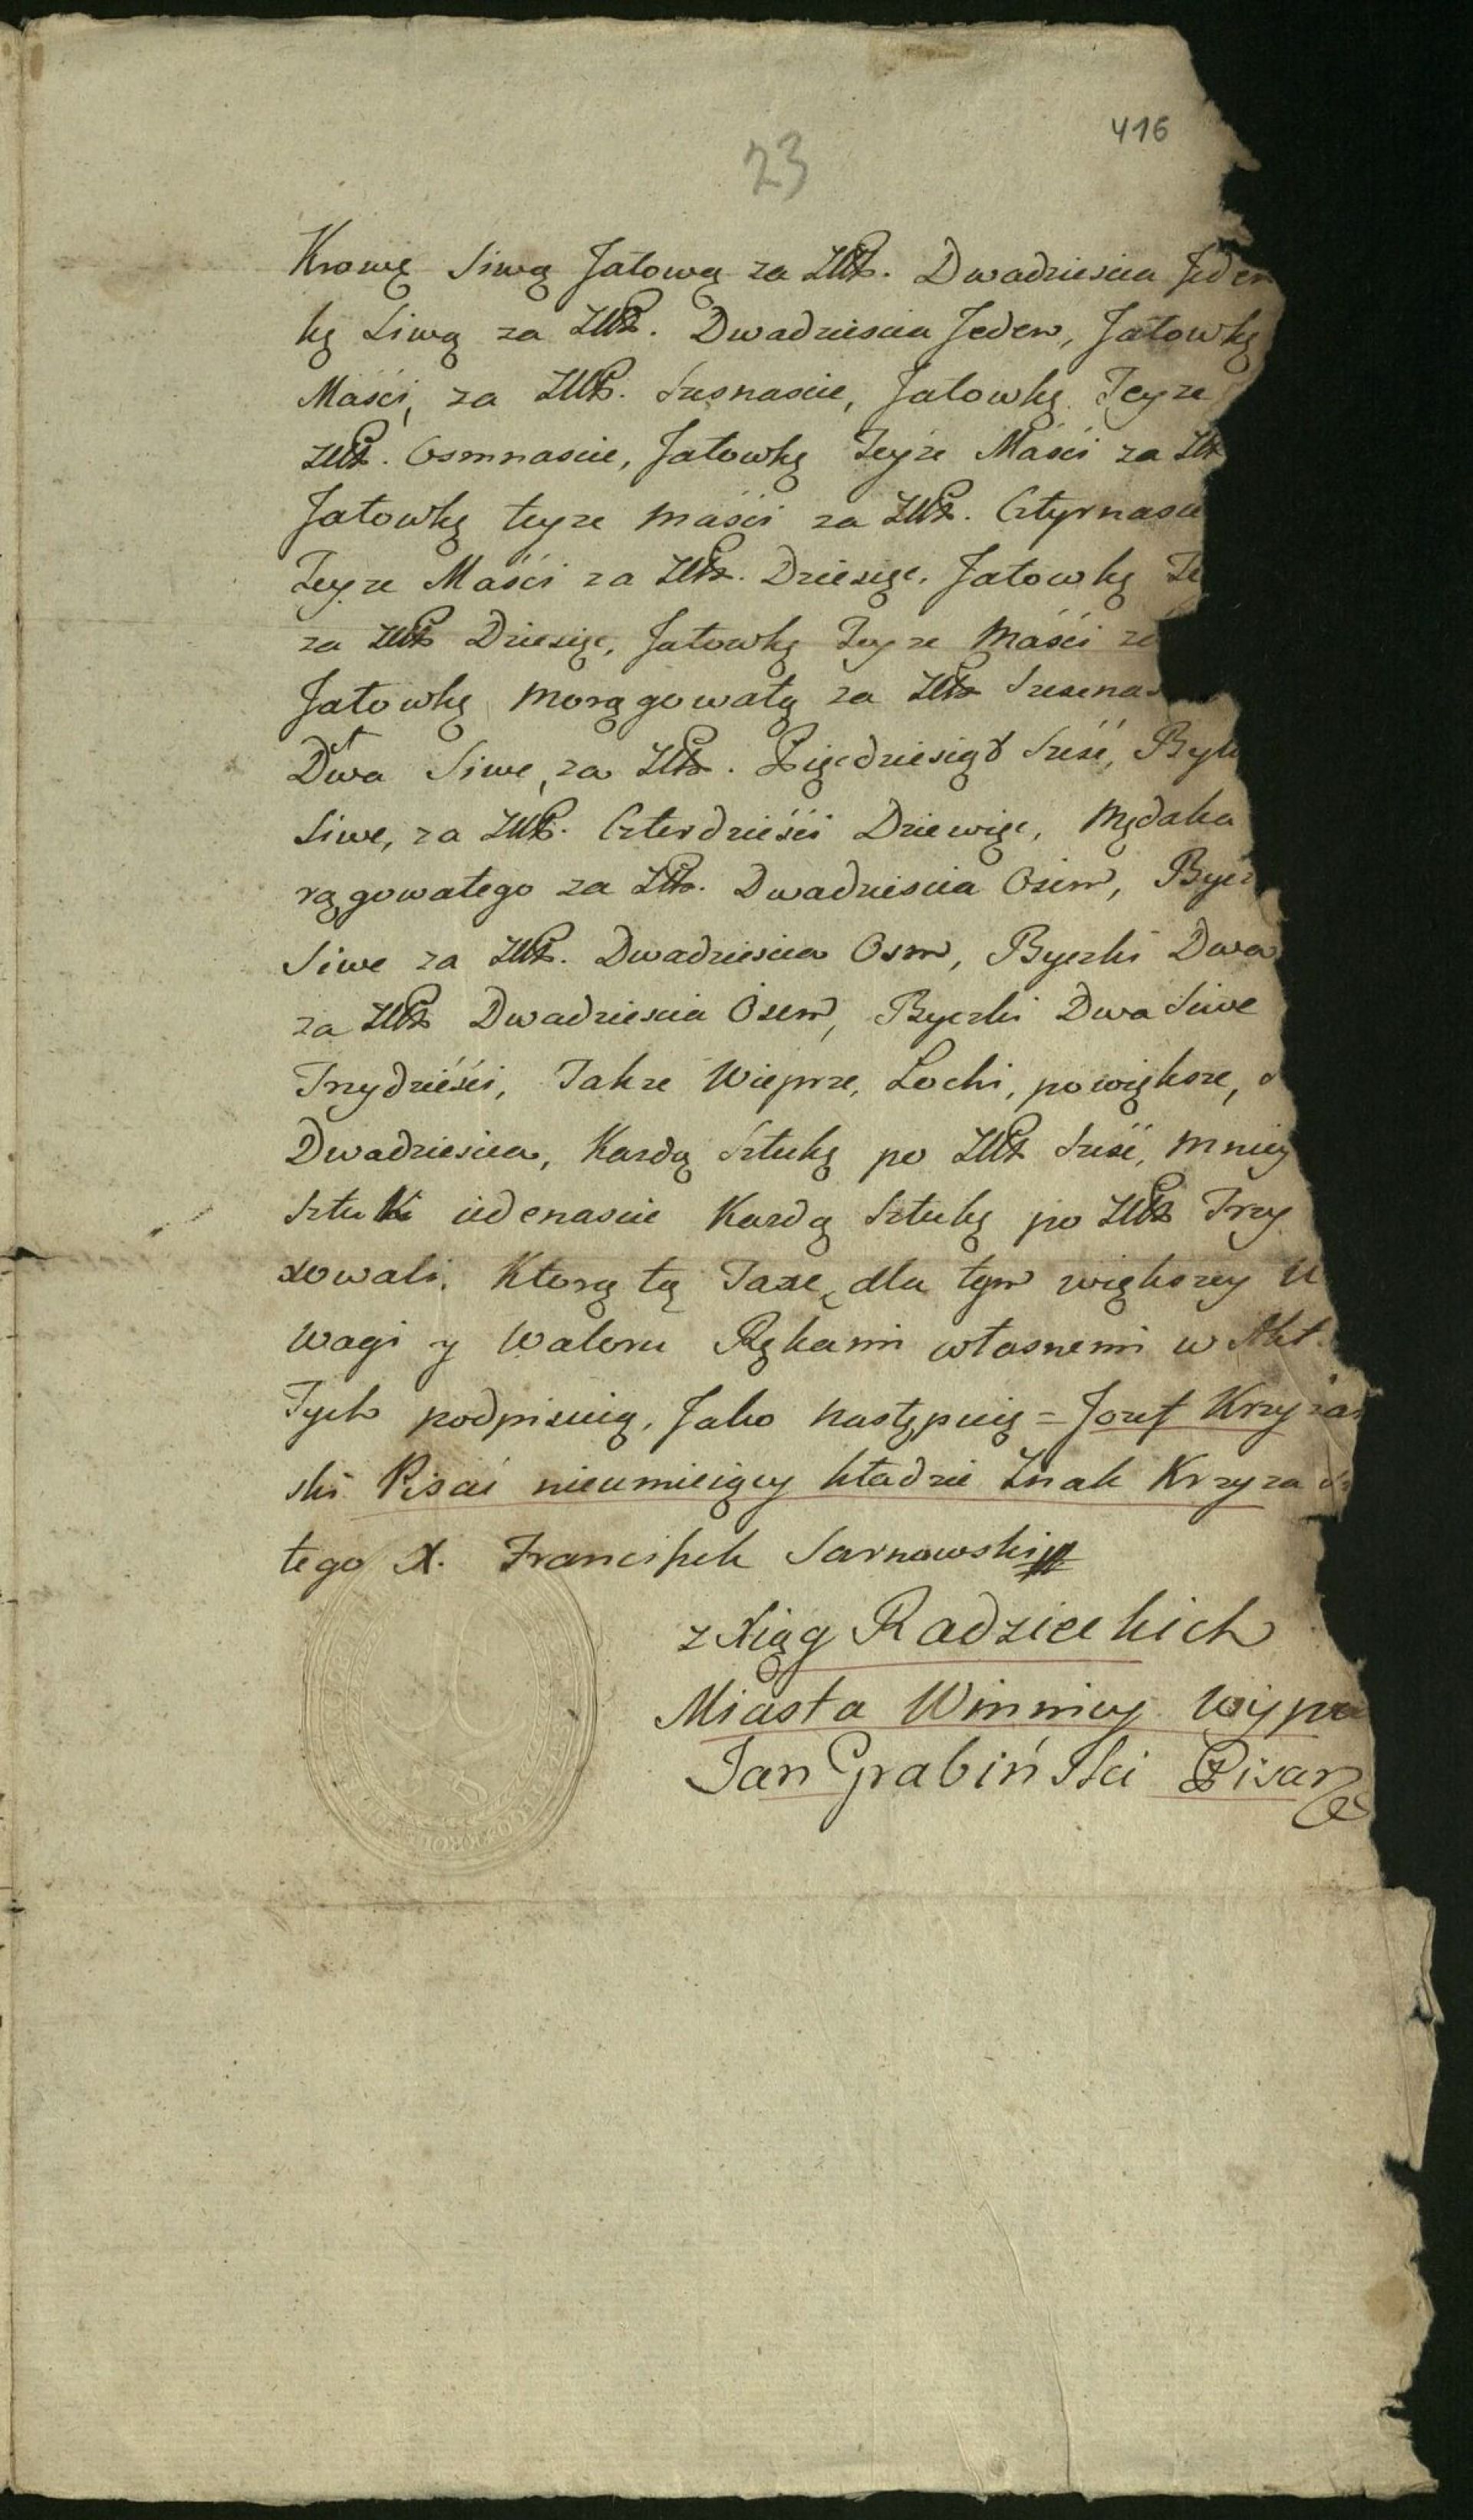 416
23
Krowę Siwą Jałową za ZłP. Dwadziescia Jeden
kę Siwą za ZłP. Dwadziescia Jeden, Jałowkę
Maści, za ZłP. Szesnascie, Jałowkę Teyze
ZłP. Osmnascie, Jałowkę Teyże Maści za Zł
Jałowkę teyze maści za ZłP. Cztyrnascie
Teyze Maści za ZłP. Dziesięc, Jałowkę Te
za ZłP Dziesięc, Jałowkę Teyze Maści za
Jałowkę morągowatą za ZłP Szesnas
Dwa Siwe, za ZłP. Pięcdziesiąt Sześć, Byk
Siwe, za ZłP. Czterdzieści Dziewięc,
rągowatego za ZłP. Dwadziescia Osim, Bycz
Siwe za ZłP. Dwadziescia Osm, Byczki Dwa
za ZłP Dwadziescia Osem, Byczki Dwa Siwe
Trzydzieści, Takze Wieprze, Lochi, powiększe,
Dwadziescia, Kazdą Sztukę po ZłP Sześć, mniey
Sztuki iedenascie Kazdą Sztukę po ZłP Trzy
xowali. Ktorą tą Taxę dla tym większey U
wagi y Waloru Rękami własnemi w Akt.
Tych podpisuią, Jako następuią = Jozef Krzyzan
ski Pisać nieumieiący kładzie Znak Krzyza S
tego X. Franciszek Sarnowski
z Xiąg Radzieckich
Miasta Winnicy Wypi
Jan Grabiński Pisarz